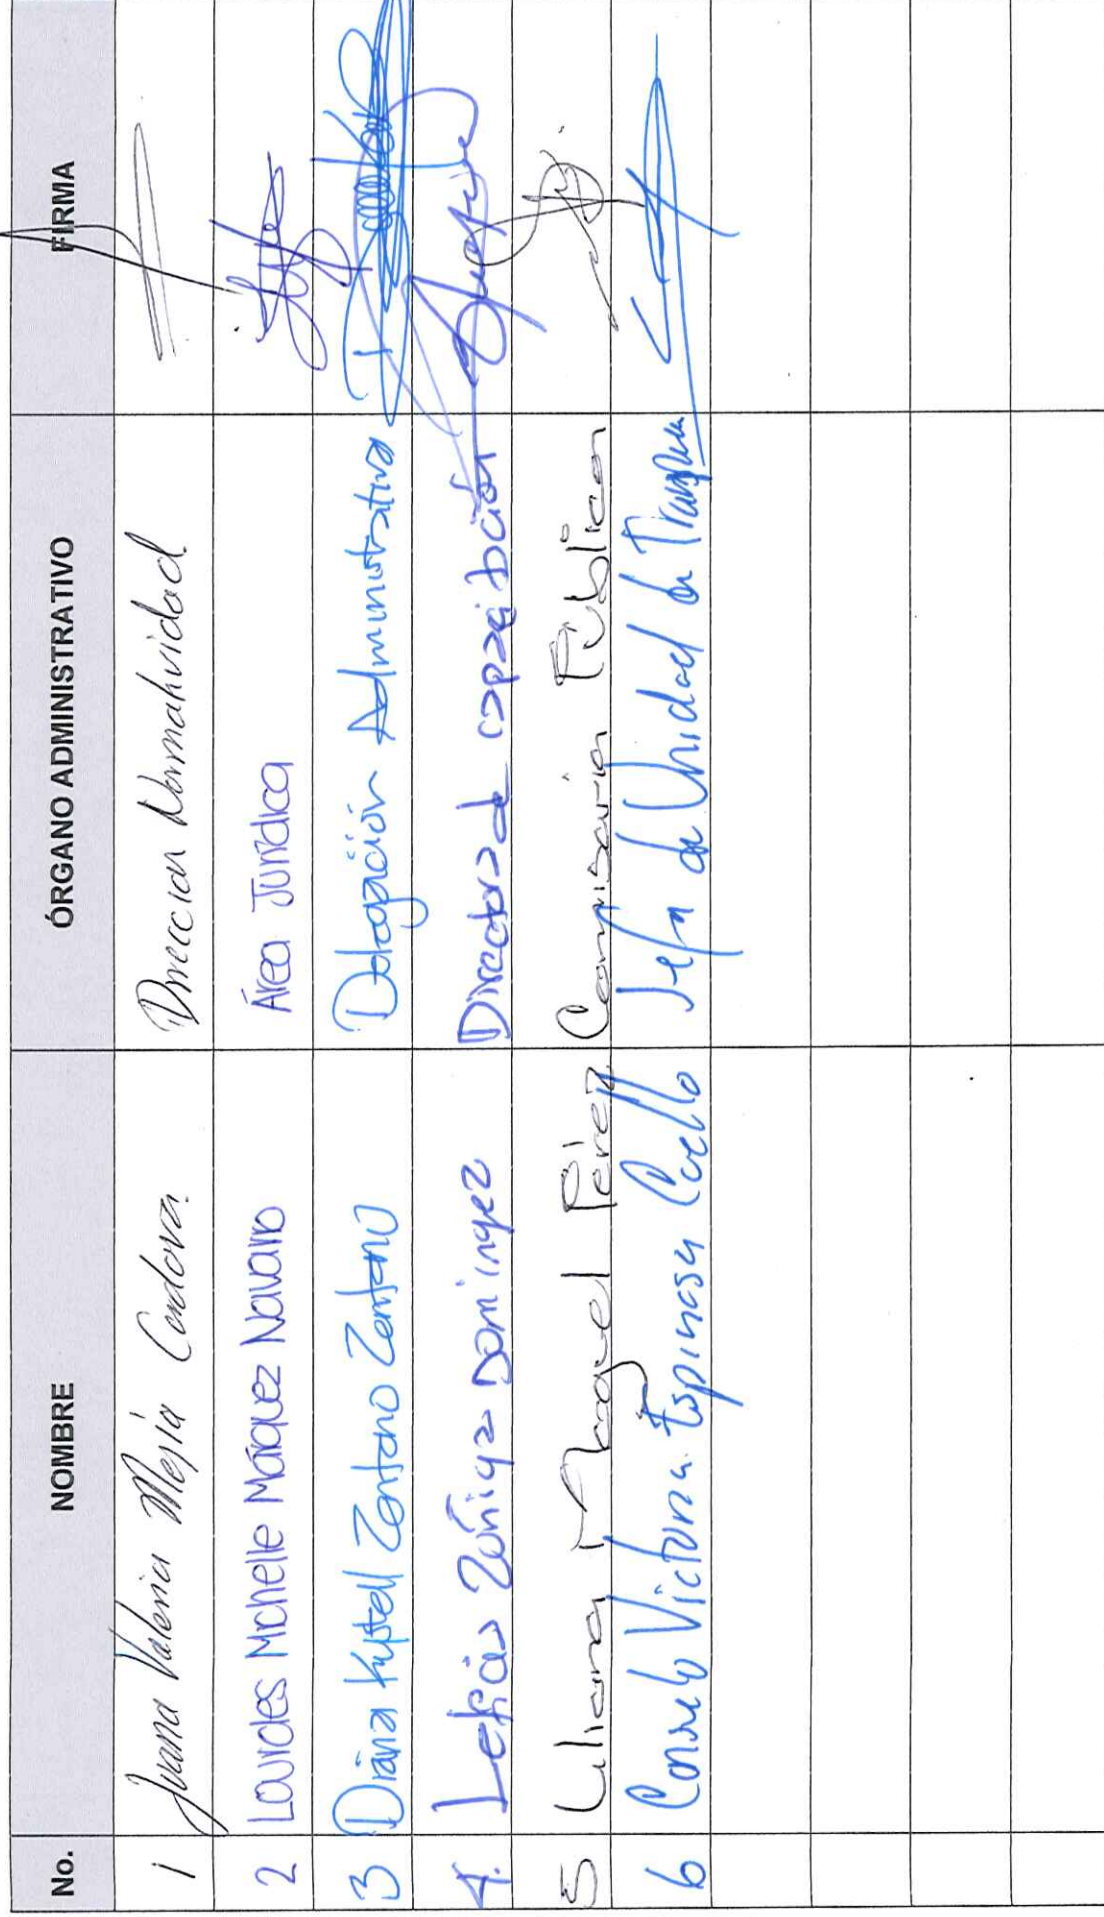 No. NOMBRE ÓRGANO ADMINISTRATIVO FIRMA
1 Juana Valeria Mejía Cordova. Dirección Normatividad
2 Lourdes Michelle Márquez Navarro Área Jurídica
3 Diana Kystell Zenteno Zenteno Delegación Administrativa
4. Leticia Zúñiga Dominguez Directora de capacitación
5 Liliana Moguel Pérez Comisaria Pública
6 Consuelo Victoria Espinosa Coello Jefa de Unidad de